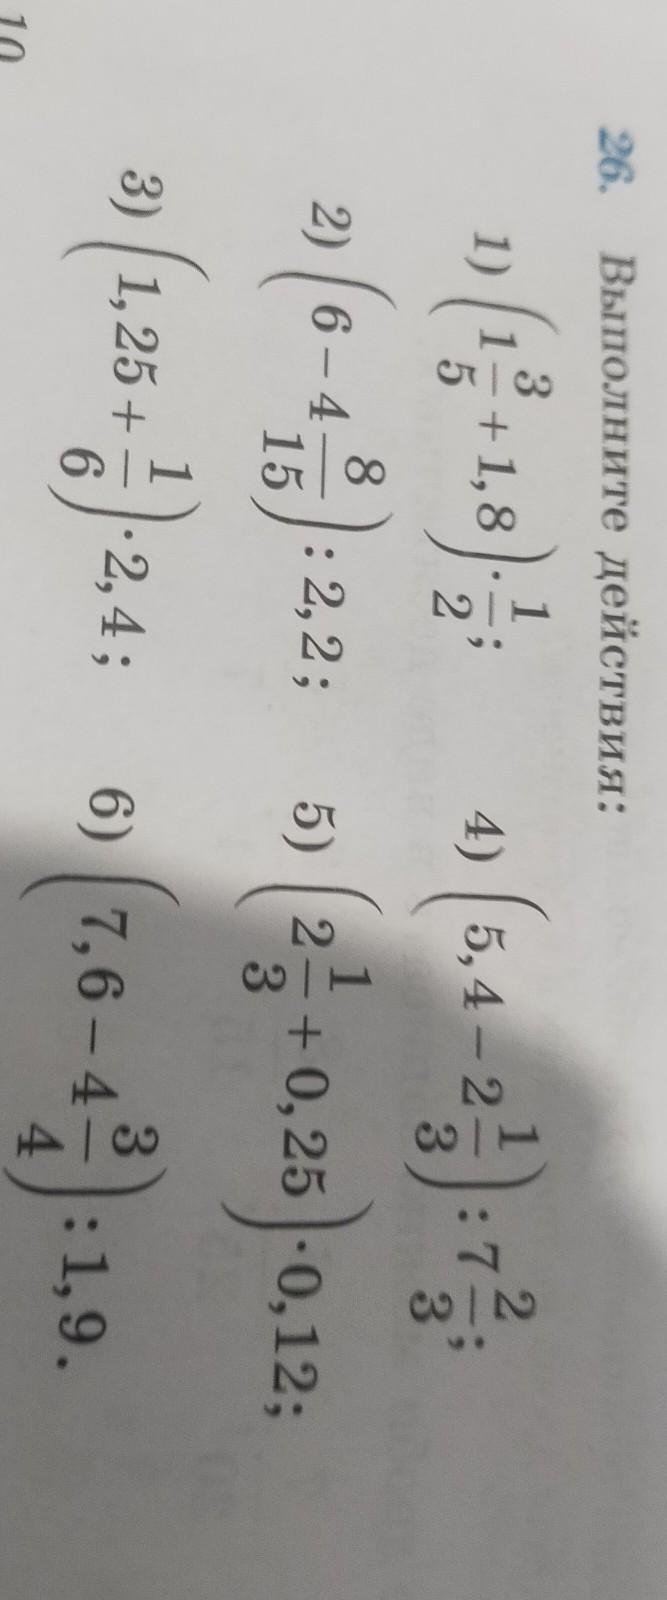 26. Выполните действия:
1) (1 3/5 + 1,8) · 1/2;
2) (6 – 4 8/15) : 2,2;
3) (1,25 + 1/6) · 2,4;
4) (5,4 – 2 1/3) : 7 2/3;
5) (2 1/3 + 0,25) · 0,12;
6) (7,6 – 4 3/4) : 1,9.
10